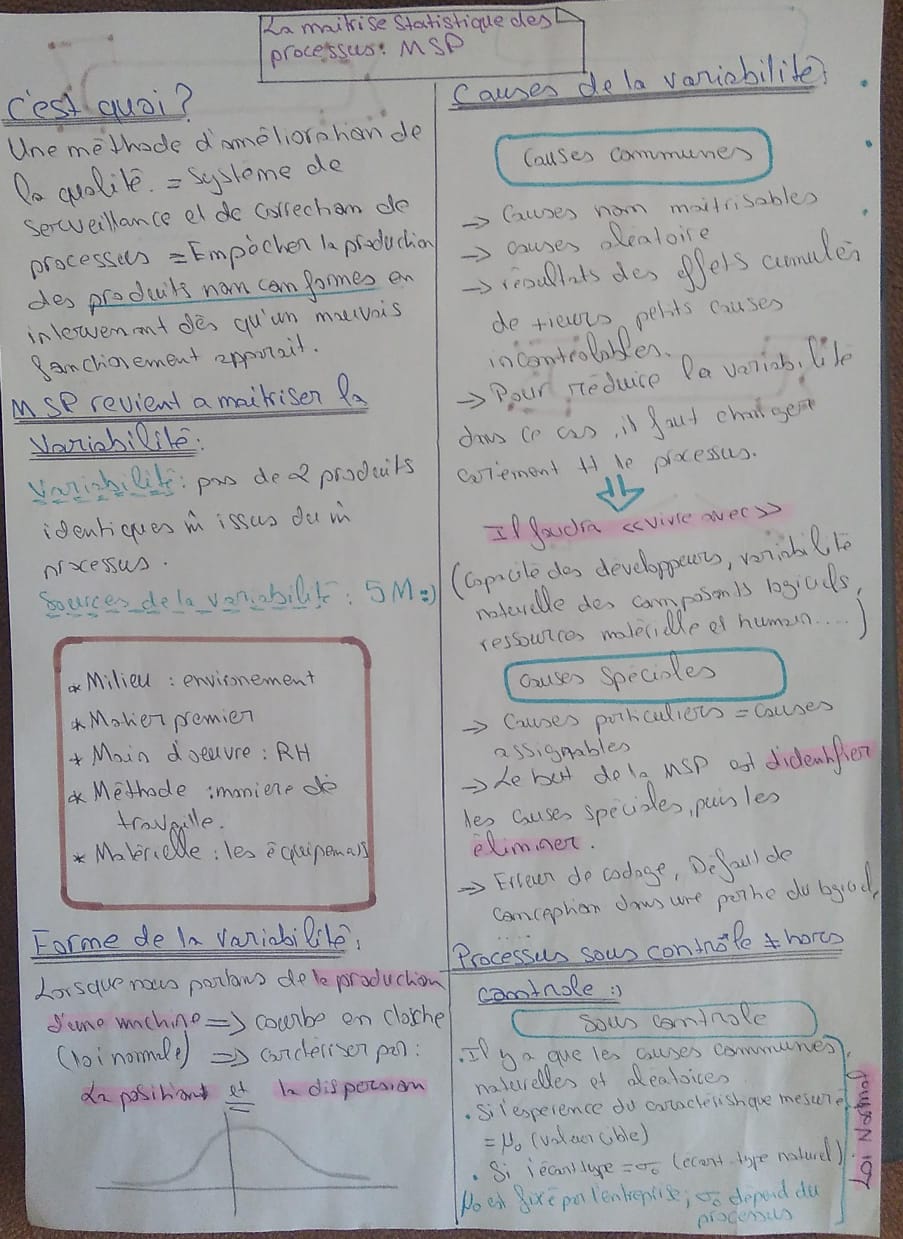 La maitrise Statistique des
processus: MSP
C'est quoi?
Une méthode d'amélioration de
la qualité. = Système de
serveillance et de correction de
processus = Empècher la production
des produits non conformes en
intervenant dès qu'un mauvais
fonctionement apparait.
MSP revient a maitriser la
Variabilité:
Variabilité: pas de 2 produits
identiques m̂ issus du m̂
processus.
Sources de la variabilité: 5M:)
* Milieu : environement
* Matier premier
* Main d'oeuvre : RH
* Méthode : maniere de
travaille.
* Matérielle : les équipemens
Forme de la variabilité:
Lorsque nous parlons de la production
d'une machine => courbe en cloche
(loi normale) => carctériser par:
La position et la dispersion
Causes de la variabilité:
Causes communes
-> Causes non maitrisables
-> causes aléatoire
-> résultats des effets cumulés
de +ieurs petits causes
incontrolables.
-> Pour réduire la variabilité
dans ce cas, il faut changer
carrément tt le processus.
Il faudra <<vivre avec>>
(Capacité des développeurs, variabilité
naturelle des composants logiciels,
ressources matérielle et humain....)
Causes Spéciales
-> Causes particuliers = causes
assignables
-> Le but de la MSP est d'identifier
les causes spéciales, puis les
éliminer.
-> Erreur de codage, Défaut de
conception dans une parthe du logiciel,
....
Processus sous contrôle ≠ hors
controle :)
Sous controle
. Il y a que les causes communes,
naturelles et aléatoires
. Si l'esperence du caractéristique mesuré
= μ₀ (valeur cible)
. Si l'écart type = σ₀ (écart-type naturel).
μ₀ est fixé par l'entreprise; σ₀ dépend du
processus